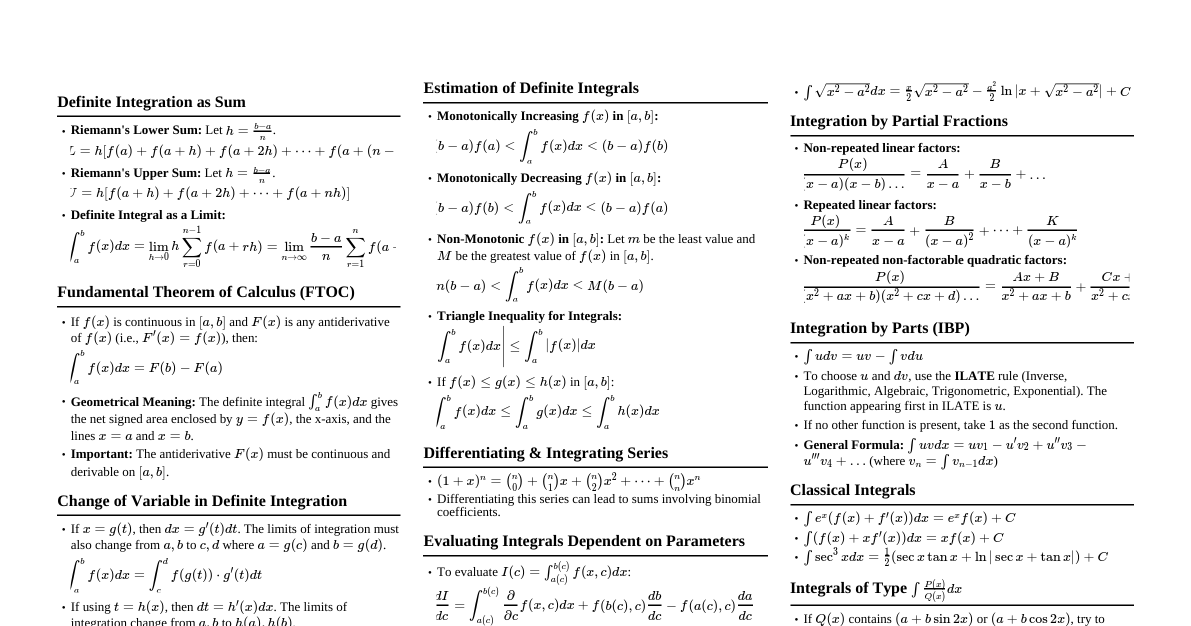 Definite Integration as Sum
• Riemann's Lower Sum: Let $h = \frac{b-a}{n}$.
$= h[f(a) + f(a+h) + f(a+2h) + \cdots + f(a+(n-$
• Riemann's Upper Sum: Let $h = \frac{b-a}{n}$.
$= h[f(a+h) + f(a+2h) + \cdots + f(a+nh)]$
• Definite Integral as a Limit:
$\int_a^b f(x)dx = \lim_{h \to 0} h \sum_{r=0}^{n-1} f(a+rh) = \lim_{n \to \infty} \frac{b-a}{n} \sum_{r=1}^{n} f(a$
Fundamental Theorem of Calculus (FTOC)
• If $f(x)$ is continuous in $[a, b]$ and $F(x)$ is any antiderivative
of $f(x)$ (i.e., $F'(x) = f(x)$), then:
$\int_a^b f(x)dx = F(b) - F(a)$
• Geometrical Meaning: The definite integral $\int_a^b f(x)dx$ gives
the net signed area enclosed by $y = f(x)$, the x-axis, and the
lines $x = a$ and $x = b$.
• Important: The antiderivative $F(x)$ must be continuous and
derivable on $[a, b]$.
Change of Variable in Definite Integration
• If $x = g(t)$, then $dx = g'(t)dt$. The limits of integration must
also change from $a, b$ to $c, d$ where $a = g(c)$ and $b = g(d)$.
$\int_a^b f(x)dx = \int_c^d f(g(t)) \cdot g'(t)dt$
• If using $t = h(x)$, then $dt = h'(x)dx$. The limits of
integration change from $a, b$ to $h(a), h(b)$.
Estimation of Definite Integrals
• Monotonically Increasing $f(x)$ in $[a, b]$:
$b - a)f(a) < \int_a^b f(x)dx < (b - a)f(b)$
• Monotonically Decreasing $f(x)$ in $[a, b]$:
$b - a)f(b) < \int_a^b f(x)dx < (b - a)f(a)$
• Non-Monotonic $f(x)$ in $[a, b]$: Let $m$ be the least value and
$M$ be the greatest value of $f(x)$ in $[a, b]$.
$n(b - a) < \int_a^b f(x)dx < M(b - a)$
• Triangle Inequality for Integrals:
$\int_a^b f(x)dx| \leq \int_a^b |f(x)|dx$
• If $f(x) \leq g(x) \leq h(x)$ in $[a, b]$:
$\int_a^b f(x)dx \leq \int_a^b g(x)dx \leq \int_a^b h(x)dx$
Differentiating & Integrating Series
• $(1+x)^n = \binom{n}{0} + \binom{n}{1}x + \binom{n}{2}x^2 + \cdots + \binom{n}{n}x^n$
• Differentiating this series can lead to sums involving binomial
coefficients.
Evaluating Integrals Dependent on Parameters
• To evaluate $I(c) = \int_{a(c)}^{b(c)} f(x, c)dx$:
$\frac{dI}{dc} = \int_{a(c)}^{b(c)} \frac{\partial}{\partial c} f(x, c)dx + f(b(c), c)\frac{db}{dc} - f(a(c), c)\frac{da}{dc}$
• $\int \sqrt{x^2 - a^2}dx = \frac{x}{2}\sqrt{x^2 - a^2} - \frac{a^2}{2} \ln |x + \sqrt{x^2 - a^2}| + C$
Integration by Partial Fractions
• Non-repeated linear factors:
$\frac{P(x)}{x-a)(x-b)\ldots} = \frac{A}{x-a} + \frac{B}{x-b} + \ldots$
• Repeated linear factors:
$\frac{P(x)}{x-a)^k} = \frac{A}{x-a} + \frac{B}{(x-a)^2} + \cdots + \frac{K}{(x-a)^k}$
• Non-repeated non-factorable quadratic factors:
$\frac{P(x)}{x^2+ax+b)(x^2+cx+d)\ldots} = \frac{Ax+B}{x^2+ax+b} + \frac{Cx+}{x^2+c}$
Integration by Parts (IBP)
• $\int udv = uv - \int vdu$
• To choose $u$ and $dv$, use the ILATE rule (Inverse,
Logarithmic, Algebraic, Trigonometric, Exponential). The
function appearing first in ILATE is $u$.
• If no other function is present, take 1 as the second function.
• General Formula: $\int uvdx = uv_1 - u'v_2 + u''v_3 -$
$u'''v_4 + \ldots$ (where $v_n = \int v_{n-1}dx$)
Classical Integrals
• $\int e^x(f(x) + f'(x))dx = e^x f(x) + C$
• $\int (f(x) + xf'(x))dx = xf(x) + C$
• $\int \sec^3 xdx = \frac{1}{2}(\sec x \tan x + \ln |\sec x + \tan x|) + C$
Integrals of Type $\int \frac{P(x)}{Q(x)}dx$
• If $Q(x)$ contains $(a + b \sin 2x)$ or $(a + b \cos 2x)$, try to